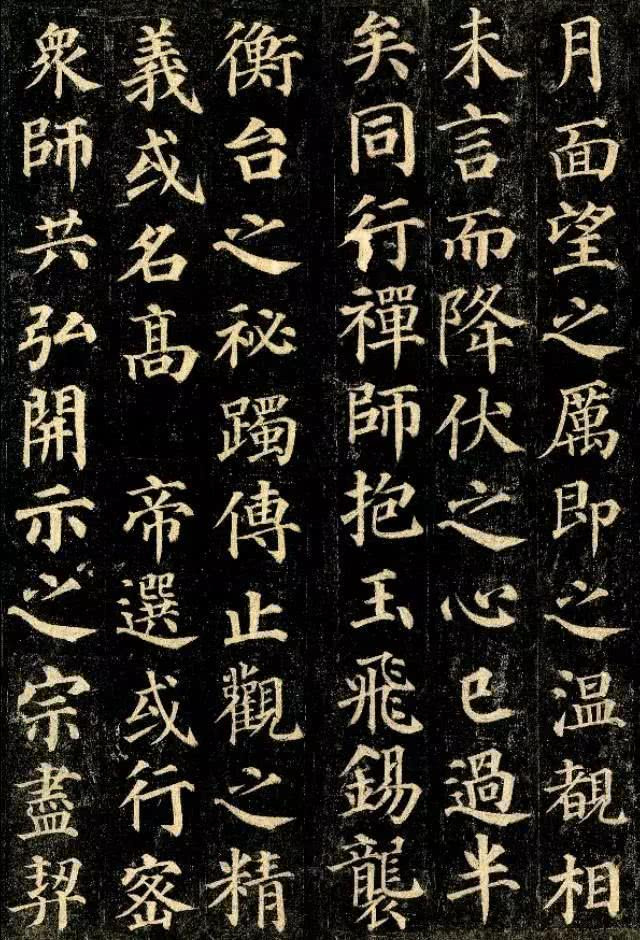 月面望之厲即之温覩相
未言而降伏之心已過半
矣同行禪師抱玉飛錫襲
衡台之祕躅傳止觀之精
義或名高帝選或行密
衆師共弘開示之宗盡契